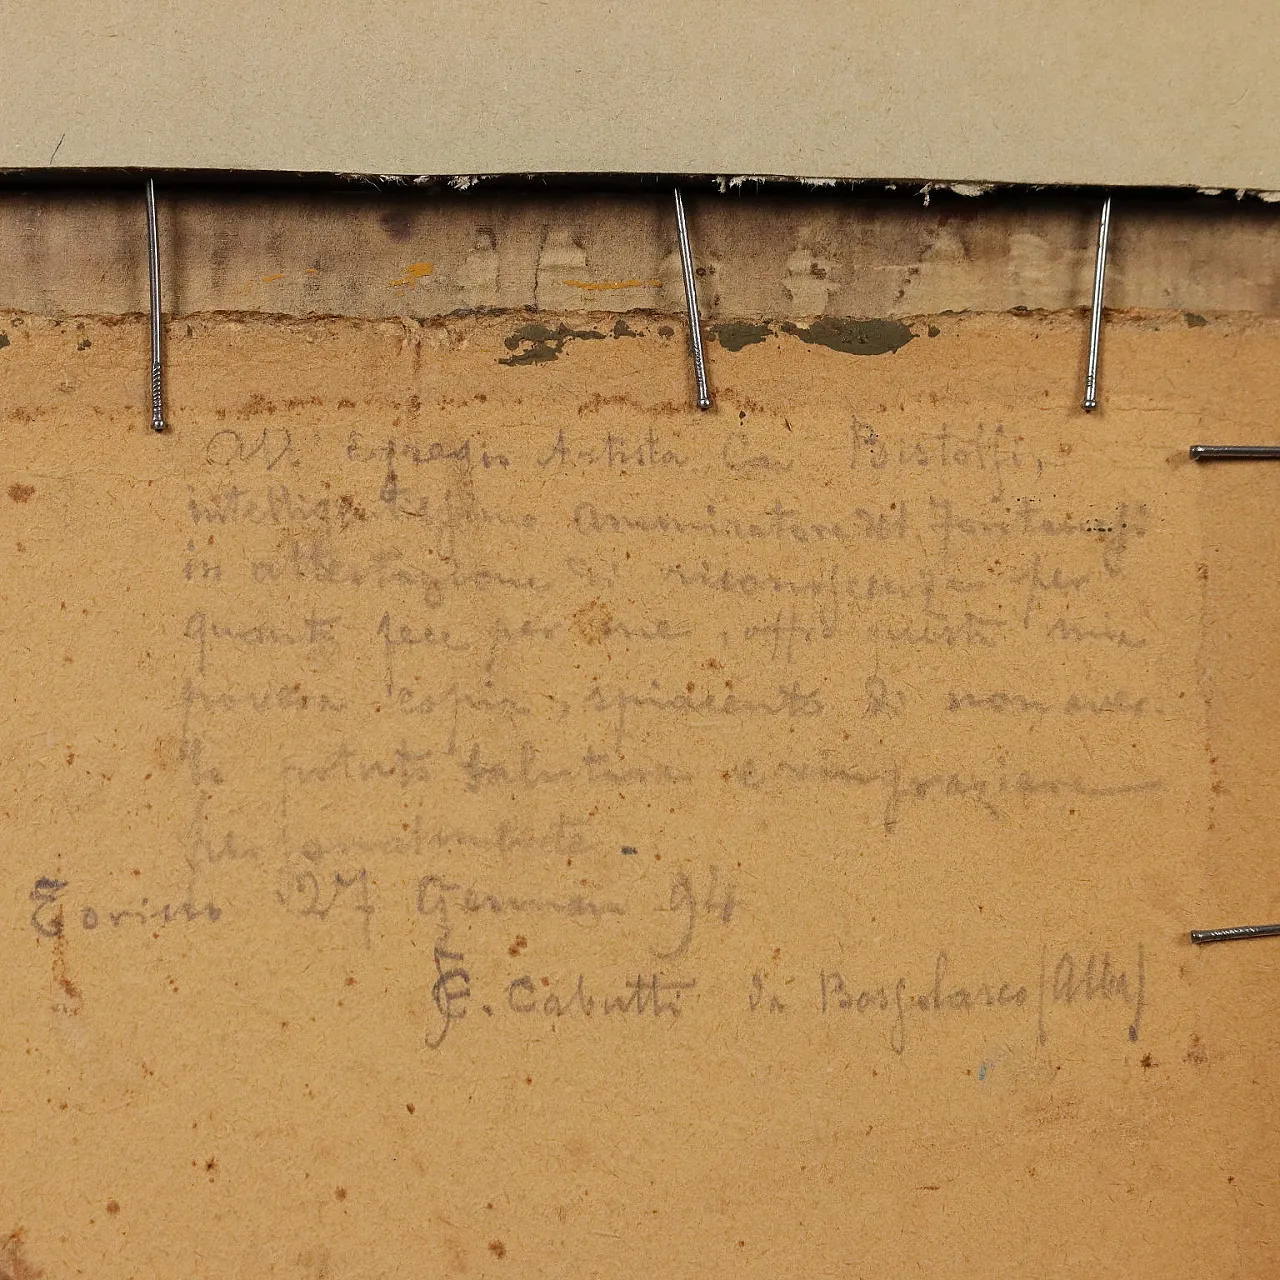 All' Egregio Artista Ca Bistolfi,
intelligentissimo ammiratore del Fontanesi
in attestazione di riconoscenza per
quanto fece per me, offro questa mia
povera copia, spiacente di non aver-
lo potuto salutare e ringraziare
personalmente.
Torino 27 Gennaio 94
C. Cabutti di Bossolasco (Alba)